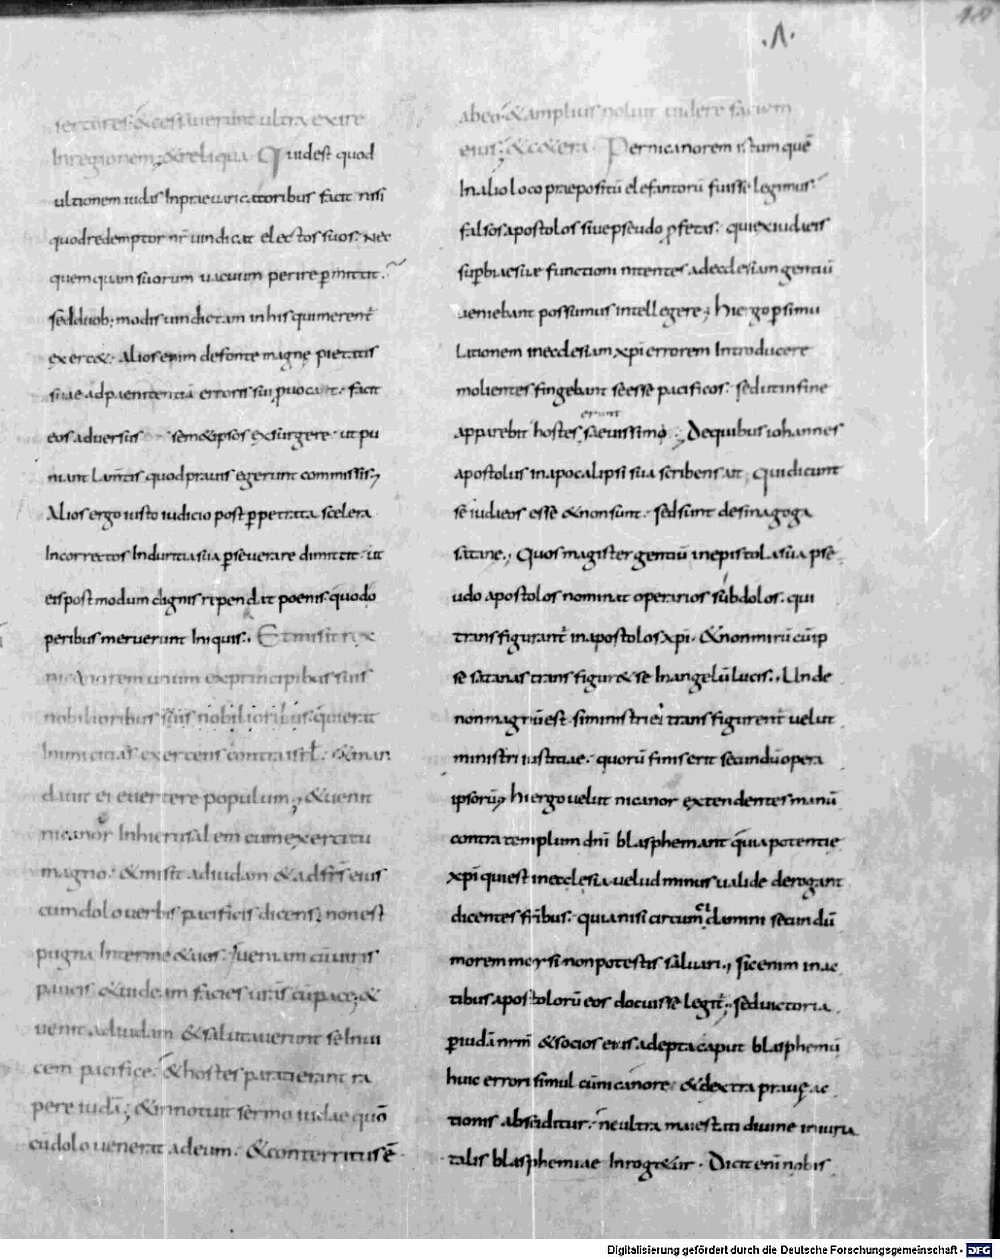 ·Λ·
10
sertores; & cessauerunt ultra exire
In regionem; & reliqua. Quid est quod
ultionem iudas In praeuaricatoribus facit nisi
quod redemptor nr̄ uindicat electos suos. Nec
quemquam suorum uacuum perire p̄mittit.
sed duob; modis uindictam in his qui merent̄
exerc&. Alios enim de fonte magnę pietatis
suae ad paenitentiā erroris sui ꝓuocant. facit
eos aduersus sem&ipsos exsurgere. ut pu
niant lamtis quod prauis egerunt commissis,
Alios ergo iusto iudicio post ꝑpetrata scelera
Incorrectos In duritia sua ꝑseuerare dimittit. ut
eis postmodum dignis rependat poenis quod o
peribus meruerunt Iniquis. Et misit rex
nicanorem unum ex principibus suis
nobilioribus qui erat
Inimicitias exercens contra isrł. & man
dauit ei euertere populum, & uenit
nicanor In hierusalem cum exercitu
magno. & misit ad iudam & ad frs̄ eius
cum dolo uerbis pacificis dicens; non est
pugna Inter me & uos. ueniam cū uiris
paucis & uideam facies urās cū pace; &
uenit ad iudam & salutauerunt se Inui
cem pacifice. & hostes parati erant ra
pere iudā; & innotuit sermo iudae quō
cū dolo uenerat ad eum. & conterritus ē
ab eo. & amplius noluit uidere faciem
eius; & cetera. Per nicanorem istum quē
In alio loco praepositū elefantorū fuisse legimus.
falsos apostolos siue pseudo ꝓfetas. qui ex iudaeis
supbiae suae functioni nitentes ad ecclesiam gentiū
ueniebant possumus intellegere; hi ergo ꝑ simu
lationem in ecclesiam xp̄i errorem Introducere
molientes fingebant se esse pacificos. sed ut in fine
erunt
apparebit hostes saeuissimo; De quibus iohannes
apostolus in apocalipsi sua scribens ait, qui dicunt
se iudaeos esse & non sunt. sed sunt de sinagoga
satane., Quos magister gentiū in epistola sua pse
udo apostolos nominat operarios subdolos. qui
transfigurant̄ in apostolos xp̄i. & non mirū cū ip
se satanas transfigur& se In angelū lucis., Unde
non magnū est. si ministri ei transfigurent̄ uelut
ministri iustitiae. quorū finis erit secundū opera
ipsorū, hi ergo uelut nicanor extendentes manū
contra templum dnī blasphemant quia potentię
xp̄i qui est in ecclesia uelud minus ualide derogant
dicentes frībus. quia nisi circumcidamini secundū
morem moysi non potestis saluari., sic enim in ac
tibus apostolorū eos docuisse legit̄., sed uictoria
ꝑ iudā nrm̄ & socios eius adepta caput blasphemū
huic errori simul cū nicanore. & dextra prauę ac
tionis absciditur. ne ultra maiestati diuine iniuria
talis blasphemiae Inrog&ur. Dicit enī nobis
Digitalisierung gefördert durch die Deutsche Forschungsgemeinschaft - DFG